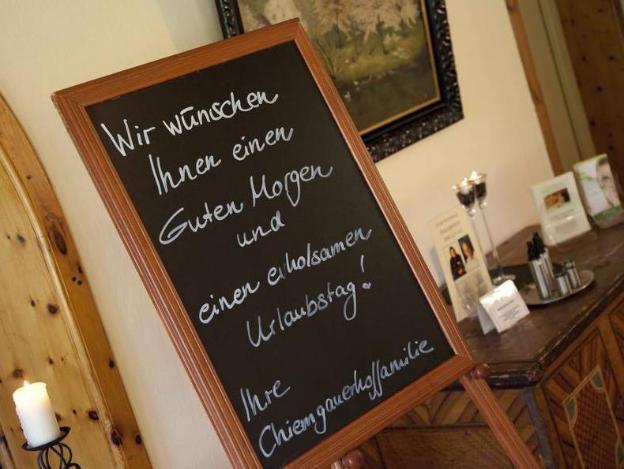 Wir wünschen
Ihnen einen
Guten Morgen
und
einen erholsamen
Urlaubstag!
Ihre
Chiemgauerhoffamilie